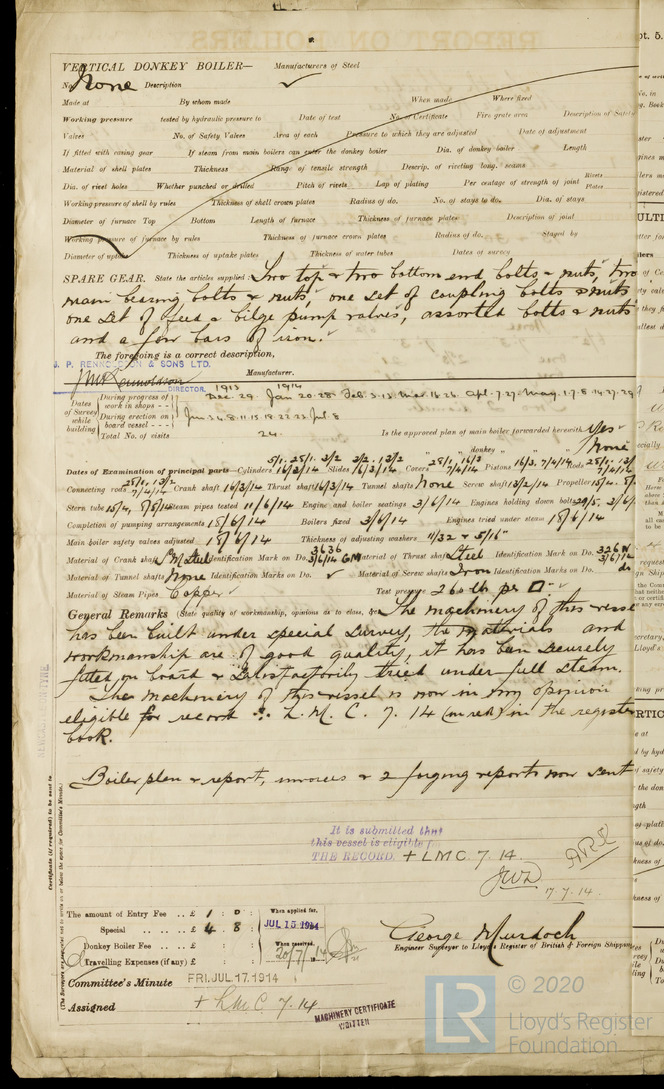 VERTICAL DONKEY BOILER— Manufacturers of Steel
No. None Description ✓
Made at By whom made When made Where fixed
Working pressure tested by hydraulic pressure to Date of test No. of Certificate Fire grate area Description of Safety
Valves No. of Safety Valves Area of each Pressure to which they are adjusted Date of adjustment
If fitted with easing gear If steam from main boilers can enter the donkey boiler Dia. of donkey boiler Length
Material of shell plates Thickness Range of tensile strength Descrip. of riveting long. seams
Dia. of rivet holes Whether punched or drilled Pitch of rivets Lap of plating Per centage of strength of joint Rivets Plates
Working pressure of shell by rules Thickness of shell crown plates Radius of do. No. of stays to do. Dia. of stays
Diameter of furnace Top Bottom Length of furnace Thickness of furnace plates Description of joint
Working pressure of furnace by rules Thickness of furnace crown plates Radius of do. Stayed by
Diameter of uptake Thickness of uptake plates Thickness of water tubes Dates of survey
SPARE GEAR. State the articles supplied:— Two top & two bottom end bolts & nuts, two
main bearing bolts & nuts, one set of coupling bolts & nuts
one set of feed & bilge pump valves, assorted bolts & nuts
and a few bars of iron.
The foregoing is a correct description,
J. P. RENNOLDSON & SONS LTD.
Manufacturer.
DIRECTOR.
Dates of Survey while building
1913 1914
During progress of work in shops - - Dec. 29. Jan 20. 28. Feb. 5. 13. Mar. 16. 26. Apl. 7. 27. May. 1. 7. 8. 14. 27. 29
During erection on board vessel - - - Jun 3. 6. 8. 11. 15. 18. 22. 23. Jul. 8
Total No. of visits 24. Is the approved plan of main boiler forwarded herewith Yes
" " donkey " " " None
Dates of Examination of principal parts—Cylinders 16/3/14 Slides 16/3/14 Covers 7/4/14 Pistons 16/3, 7/4/14 Rods 7/4/14
Connecting rods 7/4/14 Crank shaft 16/3/14 Thrust shaft 16/3/14 Tunnel shafts None Screw shaft 13/2/14 Propeller
Stern tube Steam pipes tested 11/6/14 Engine and boiler seatings 3/6/14 Engines holding down bolts
Completion of pumping arrangements 18/6/14 Boilers fixed 3/6/14 Engines tried under steam 18/6/14
Main boiler safety valves adjusted 18/6/14 Thickness of adjusting washers 11/32 & 5/16"
Material of Crank shaft Identification Mark on Do. 3636 3/6/14 GM Material of Thrust shaft Steel Identification Mark on Do. 3/6/14
Material of Tunnel shafts None Identification Marks on Do. ✓ Material of Screw shafts Iron Identification Marks on Do. do
Material of Steam Pipes Copper Test pressure 260 lb per □"
General Remarks (State quality of workmanship, opinions as to class, &c. The machinery of this vessel
has been built under special survey, the materials and
workmanship are of good quality, it has been securely
fitted on board & satisfactorily tried under full steam.
The machinery of this vessel is now in my opinion
eligible for record L. M. C. 7. 14 (in red) in the register
book.
Boiler plan & report, invoices & 2 forging reports now sent
It is submitted that
this vessel is eligible for
THE RECORD. + LMC. 7. 14.
JWD
17.7.14.
Certificate (if required) to be sent to
The amount of Entry Fee .. £ 1 : 0 :
Special .. £ 4 : 8 :
Donkey Boiler Fee .. £ : :
Travelling Expenses (if any) £ : :
When applied for, JUL 15 1914
When received, 20/7/14
George Murdoch
Engineer Surveyor to Lloyd's Register of British & Foreign Shipping
Committee's Minute FRI. JUL. 17. 1914
Assigned + LMC 7. 14
MACHINERY CERTIFICATE
WRITTEN
LR © 2020
Lloyd's Register
Foundation